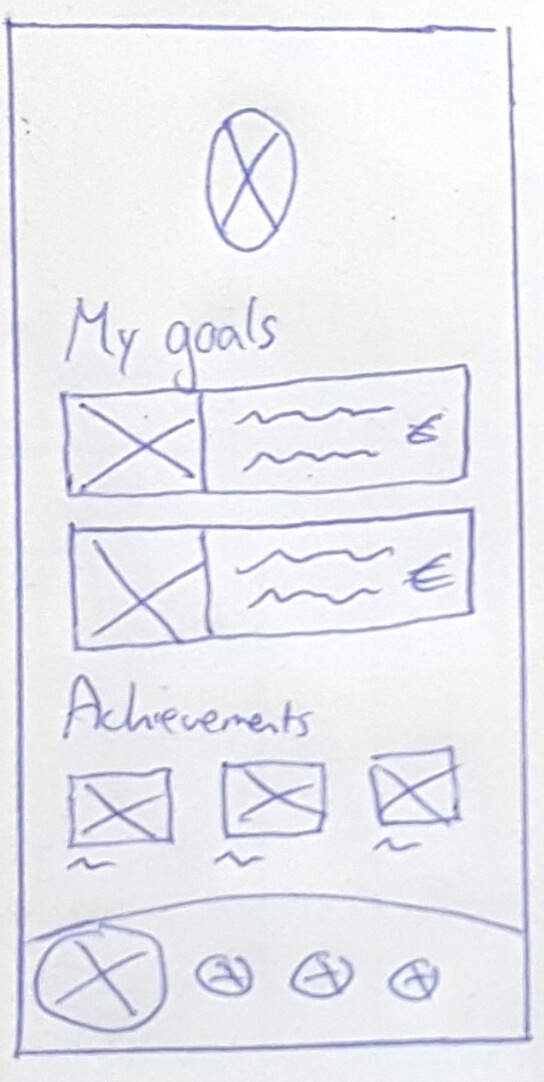 My goals
€
€
Achievements